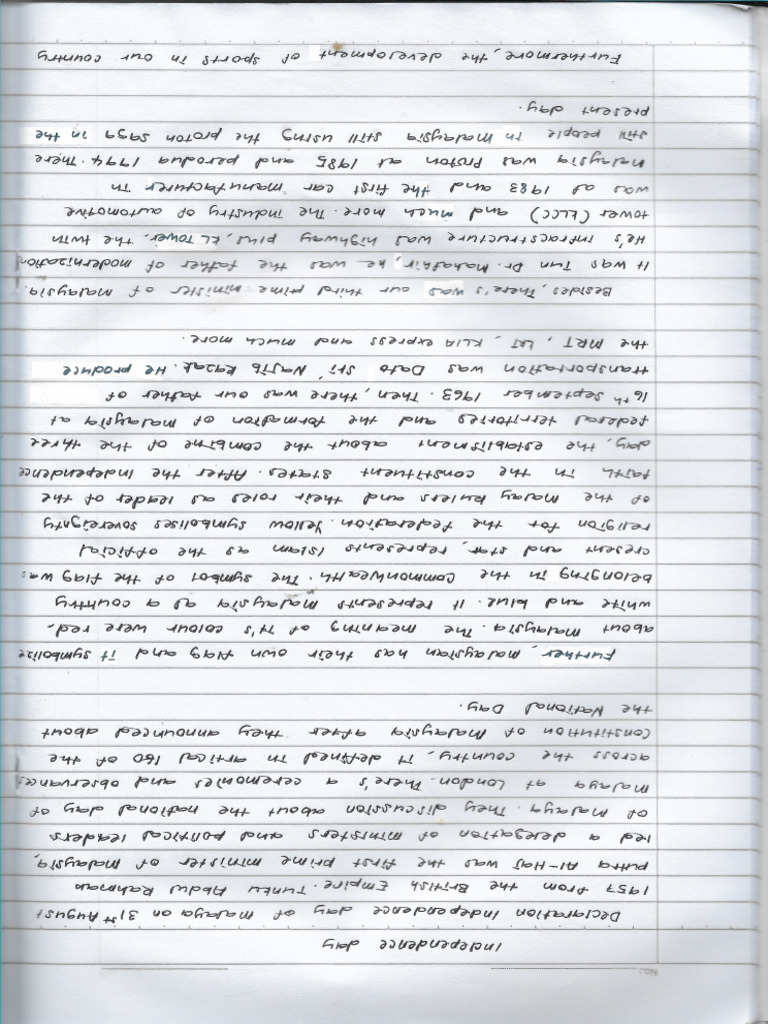 No:
Independence day
Declaration independence day of malaya on 31st August
1957 from the British Empire. Tunku Abdul Rahman
putra Al-Haj was the first prime minister of malaysia,
led a delegation of ministers and political leaders
of malaya. They discussion about the national day of
malaya at London. There's a ceremonies and observances
across the country, it defined in 160 of the artical
constitution of malaysia after they announced about
the National Day.
Further, malaysian has their own flag and it symbolise
about malaysia. The meaning of it's colour were red,
white and blue. It represents malaysia as a country
belonging in the commonwealth. The symbol of the flag was
cresent and star, represents Islam as the official
religion for the federation. Yellow symbolises sovereignty
of the malay Rulers and their roles as leader of the
faith in the constituent states. After the independence
day, the establisment about the combine of the three
federal territories and the formation of malaysia at
16th September 1963. Then, there was our father of
transportation was Dato' Sri Najib Razak. He produce
the MRT, LRT, KLIA express and much more.
Besides, There's was our third prime minister of malaysia.
It was Tun Dr. Mahathir, he was the father of modernization
He's infracstructure was highway plus, KL Tower, the twin
tower (KLCC) and much more. The industry of automotive
was at 1983 and the first car manufacturer in
malaysia was Proton at 1985 and perodua 1994. There
still people in malaysia still using the proton saga in the
present day.
Furthermore, the development of sports in our country